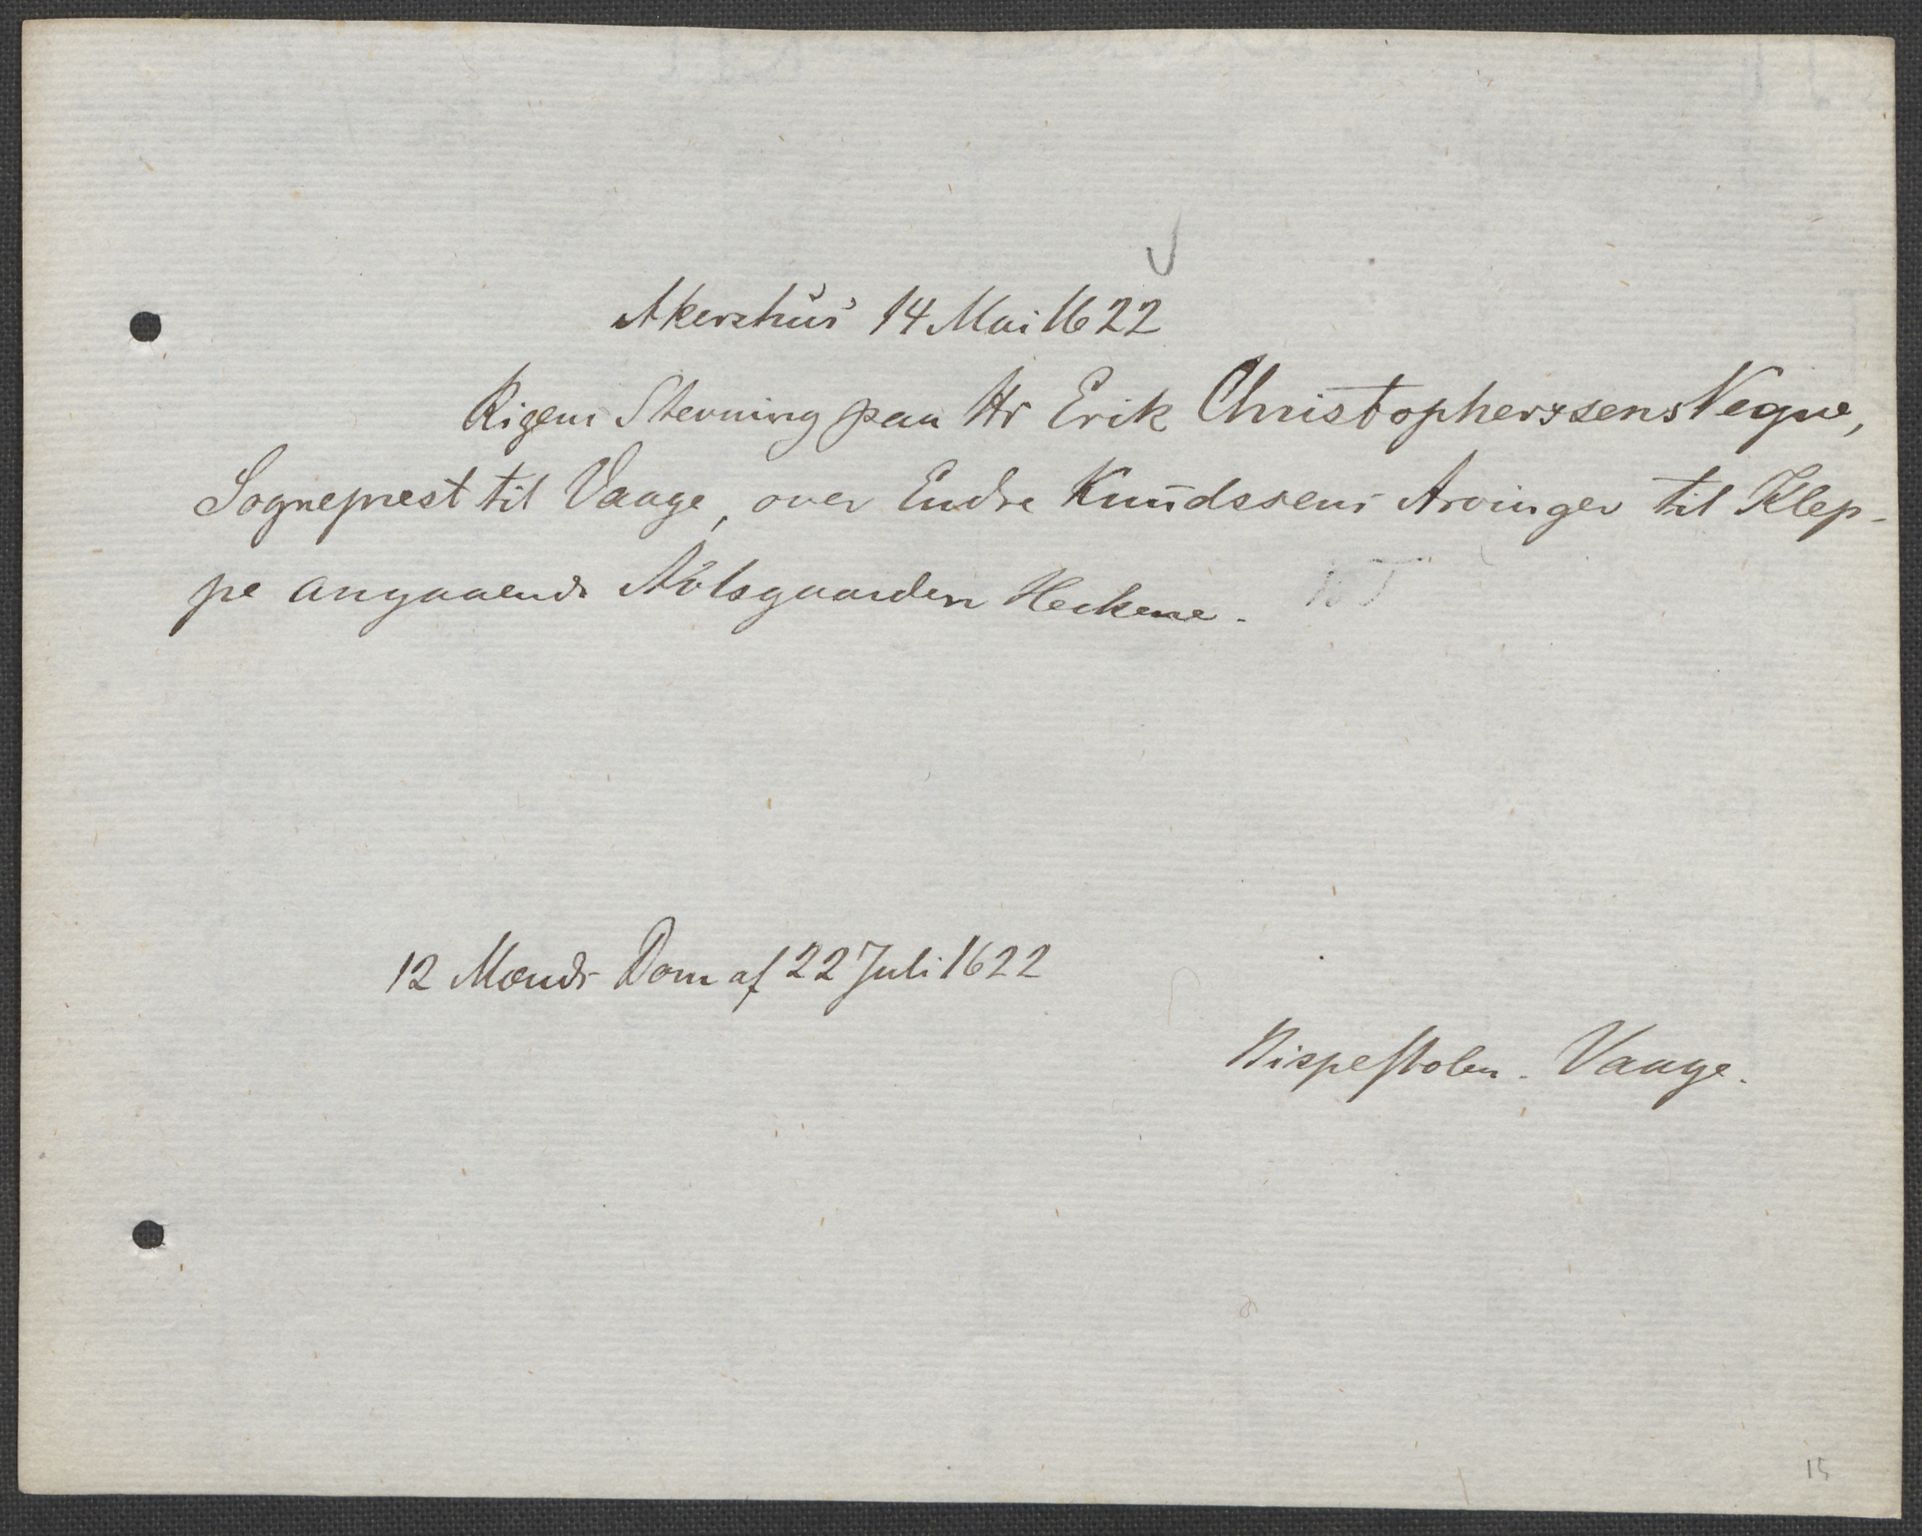 Akershus 14 Mai 1622
Rigens Stevning paa Hr Erik Christopherssens Vegne,
Sogneprest til Vaage, over Endre Knudssens Arvinger til Klep-
pe angaaende Aabolsgaarden Heckene.
12 Mænds Dom af 22 Juli 1622
Bispestolen. Vaage.
15